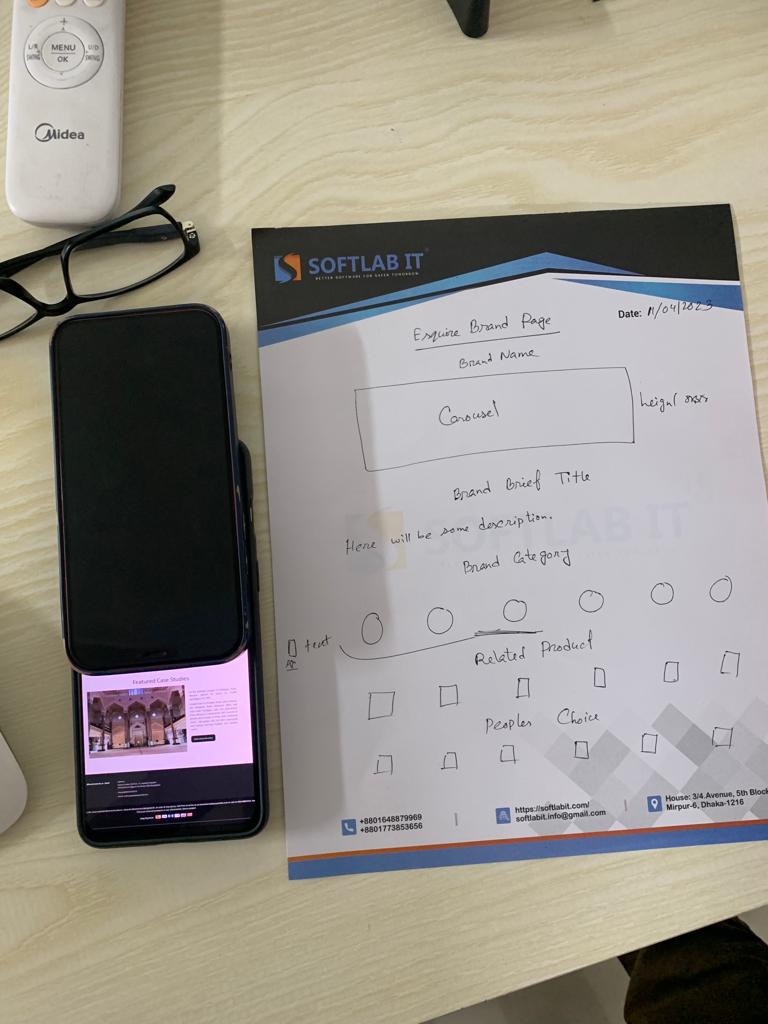 L/R
SWING
MENU
OK
U/D
SWING
Midea
SOFTLAB IT
BETTER SOFTWARE FOR SAFER TOMORROW
Date: 11/04/2023
Esquire Brand Page
Brand Name
Carousel
Brand Brief Title
SOFTLAB IT
Here will be some description.
Brand Category
text
Related Product
Peoples Choice
+8801648879969
+8801773853656
https://softlabit.com/
softlabit.info@gmail.com
House: 3/4.Avenue, 5th Block
Mirpur-6, Dhaka-1216
Featured Case Studies